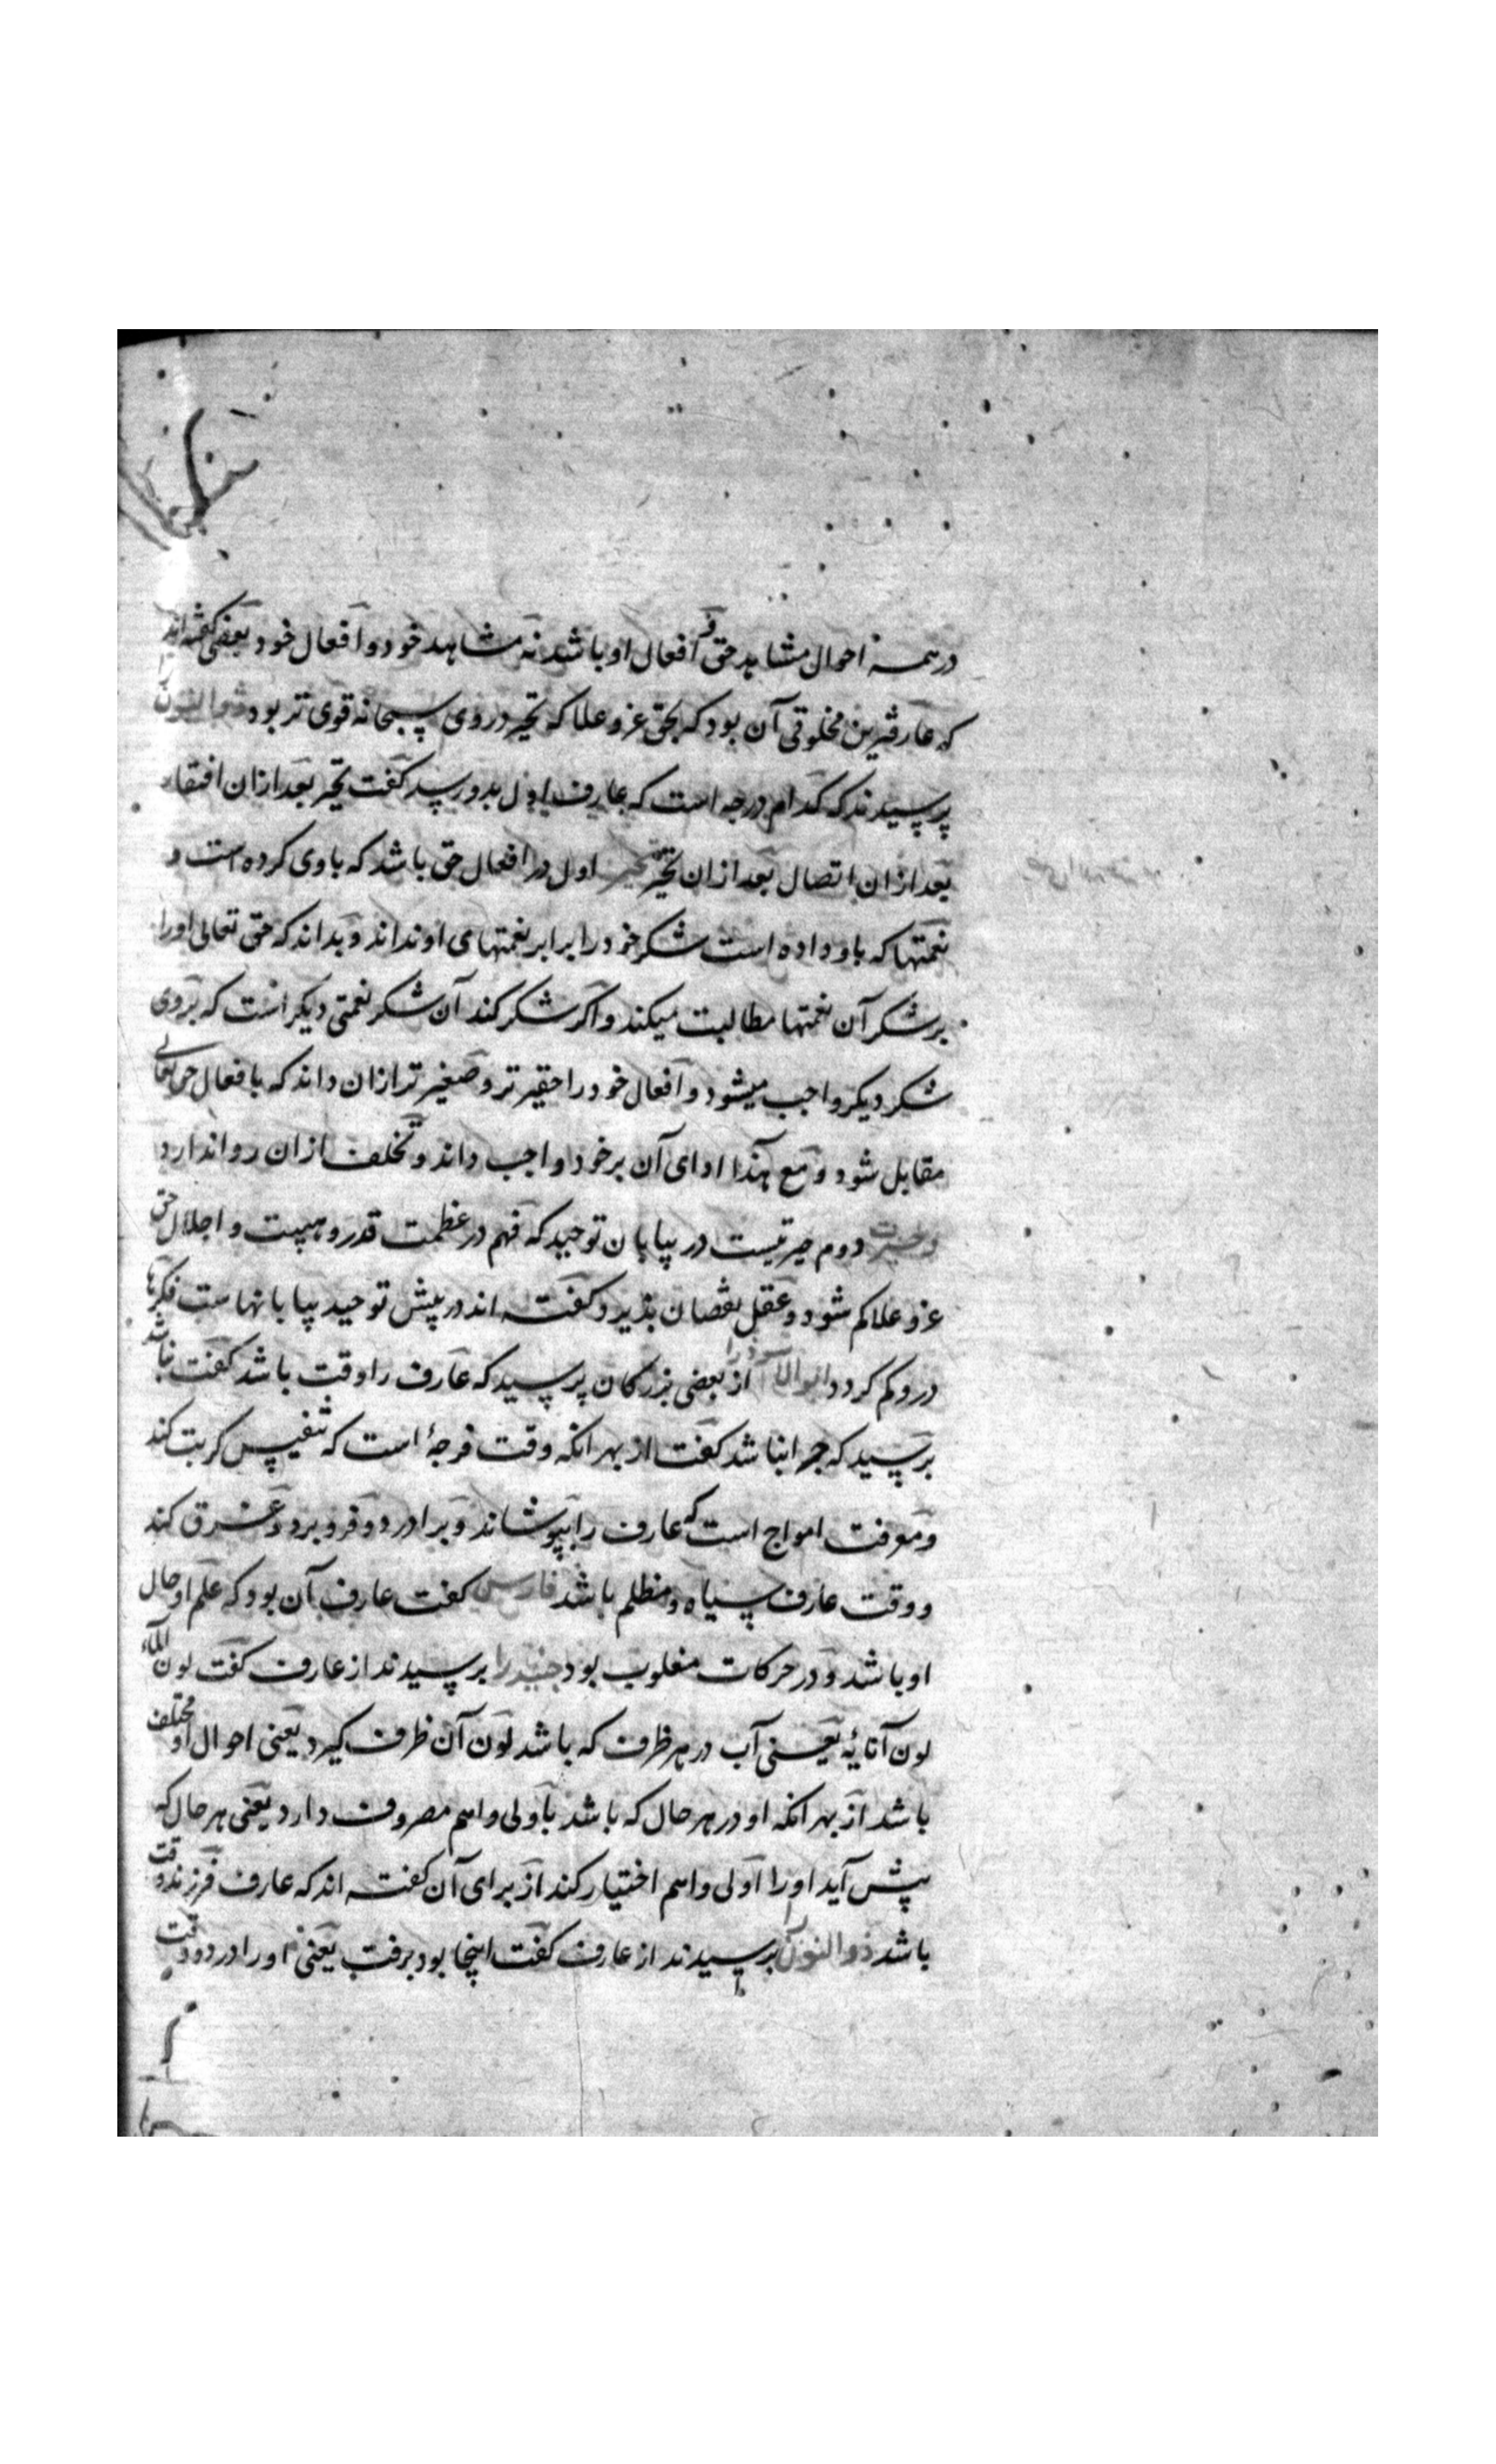 درهمه احوال مشاهد حق و افعال او باشد نه مشاهد خود و افعال خود بعضی گفته اند
که عارفترین مخلوقی آن بود که بحق عز و علا که تحیر در وی سبحانه قوی تر بود ذوالنون را
پرسیدند که کدام درجه است که عارف اول بدو رسد گفت تحیر بعد ازان افتقار
بعد ازان اتصال بعد ازان تحیر تحیر اول در افعال حق باشد که با وی کرده است و
نعمتها که باو داده است شکر خود را برابر نعمتهای او نداند و بداند که حق تعالی او را
بر شکر آن نعمتها مطالبت میکند و اگر شکر کند آن شکر نعمتی دیکر است که بروی
شکر دیکر واجب میشود و افعال خود را حقیر تر و صغیر تر ازان داند که بافعال حق تعالی
مقابل شود و مع هذا ادای آن برخود واجب داند و تخلف ازان روا ندارد
و حیرت دوم حیرتیست در بیابان توحید که فهم در عظمت قدر و هیبت و اجلال حق
عز و علا کم شود و عقل نقصان پذیرد و گفته اند در پیش توحید بیابانهاست فکرها
درو کم کردد از بعضی بزرکان پرسید که عارف را وقت باشد کفت نباشد
پرسید که چرا نباشد کفت از بهر انکه وقت فرجهٔ است که تنفیس کربت کند
و معرفت امواج است که عارف را بپوشاند و برادرد و فرو برد و غرق کند
و وقت عارف سیاه و مظلم باشد فارس کفت عارف آن بود که علم او حال
او باشد و در حرکات مغلوب بود جنید را پرسیدند از عارف کفت لون الماء
لون آنائه یعنی آب در هر ظرف که باشد لون آن ظرف گیرد یعنی احوال او مختلف
باشد از بهر انکه او در هر حال که باشد باولی و اهم مصروف دارد یعنی هر حال که
پیش آید او را اولی و اهم اختیار کند از برای آن کفته اند که عارف فرزند وقت
باشد ذوالنون را پرسیدند از عارف کفت اینجا بود برفت یعنی او را در دو وقت